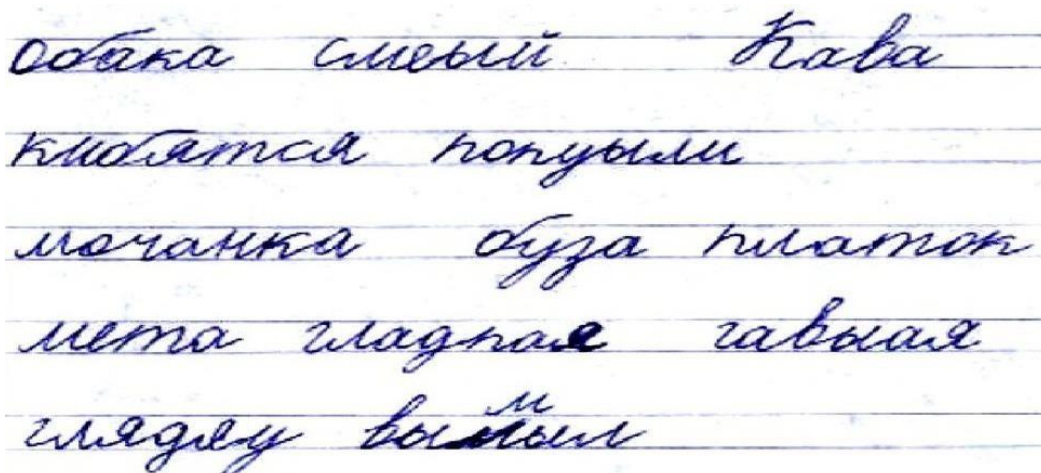 обака смеый Кава
кнобятся попуыли
мочанка буза платок
мета гладпая гавыая
глядяу вымыл